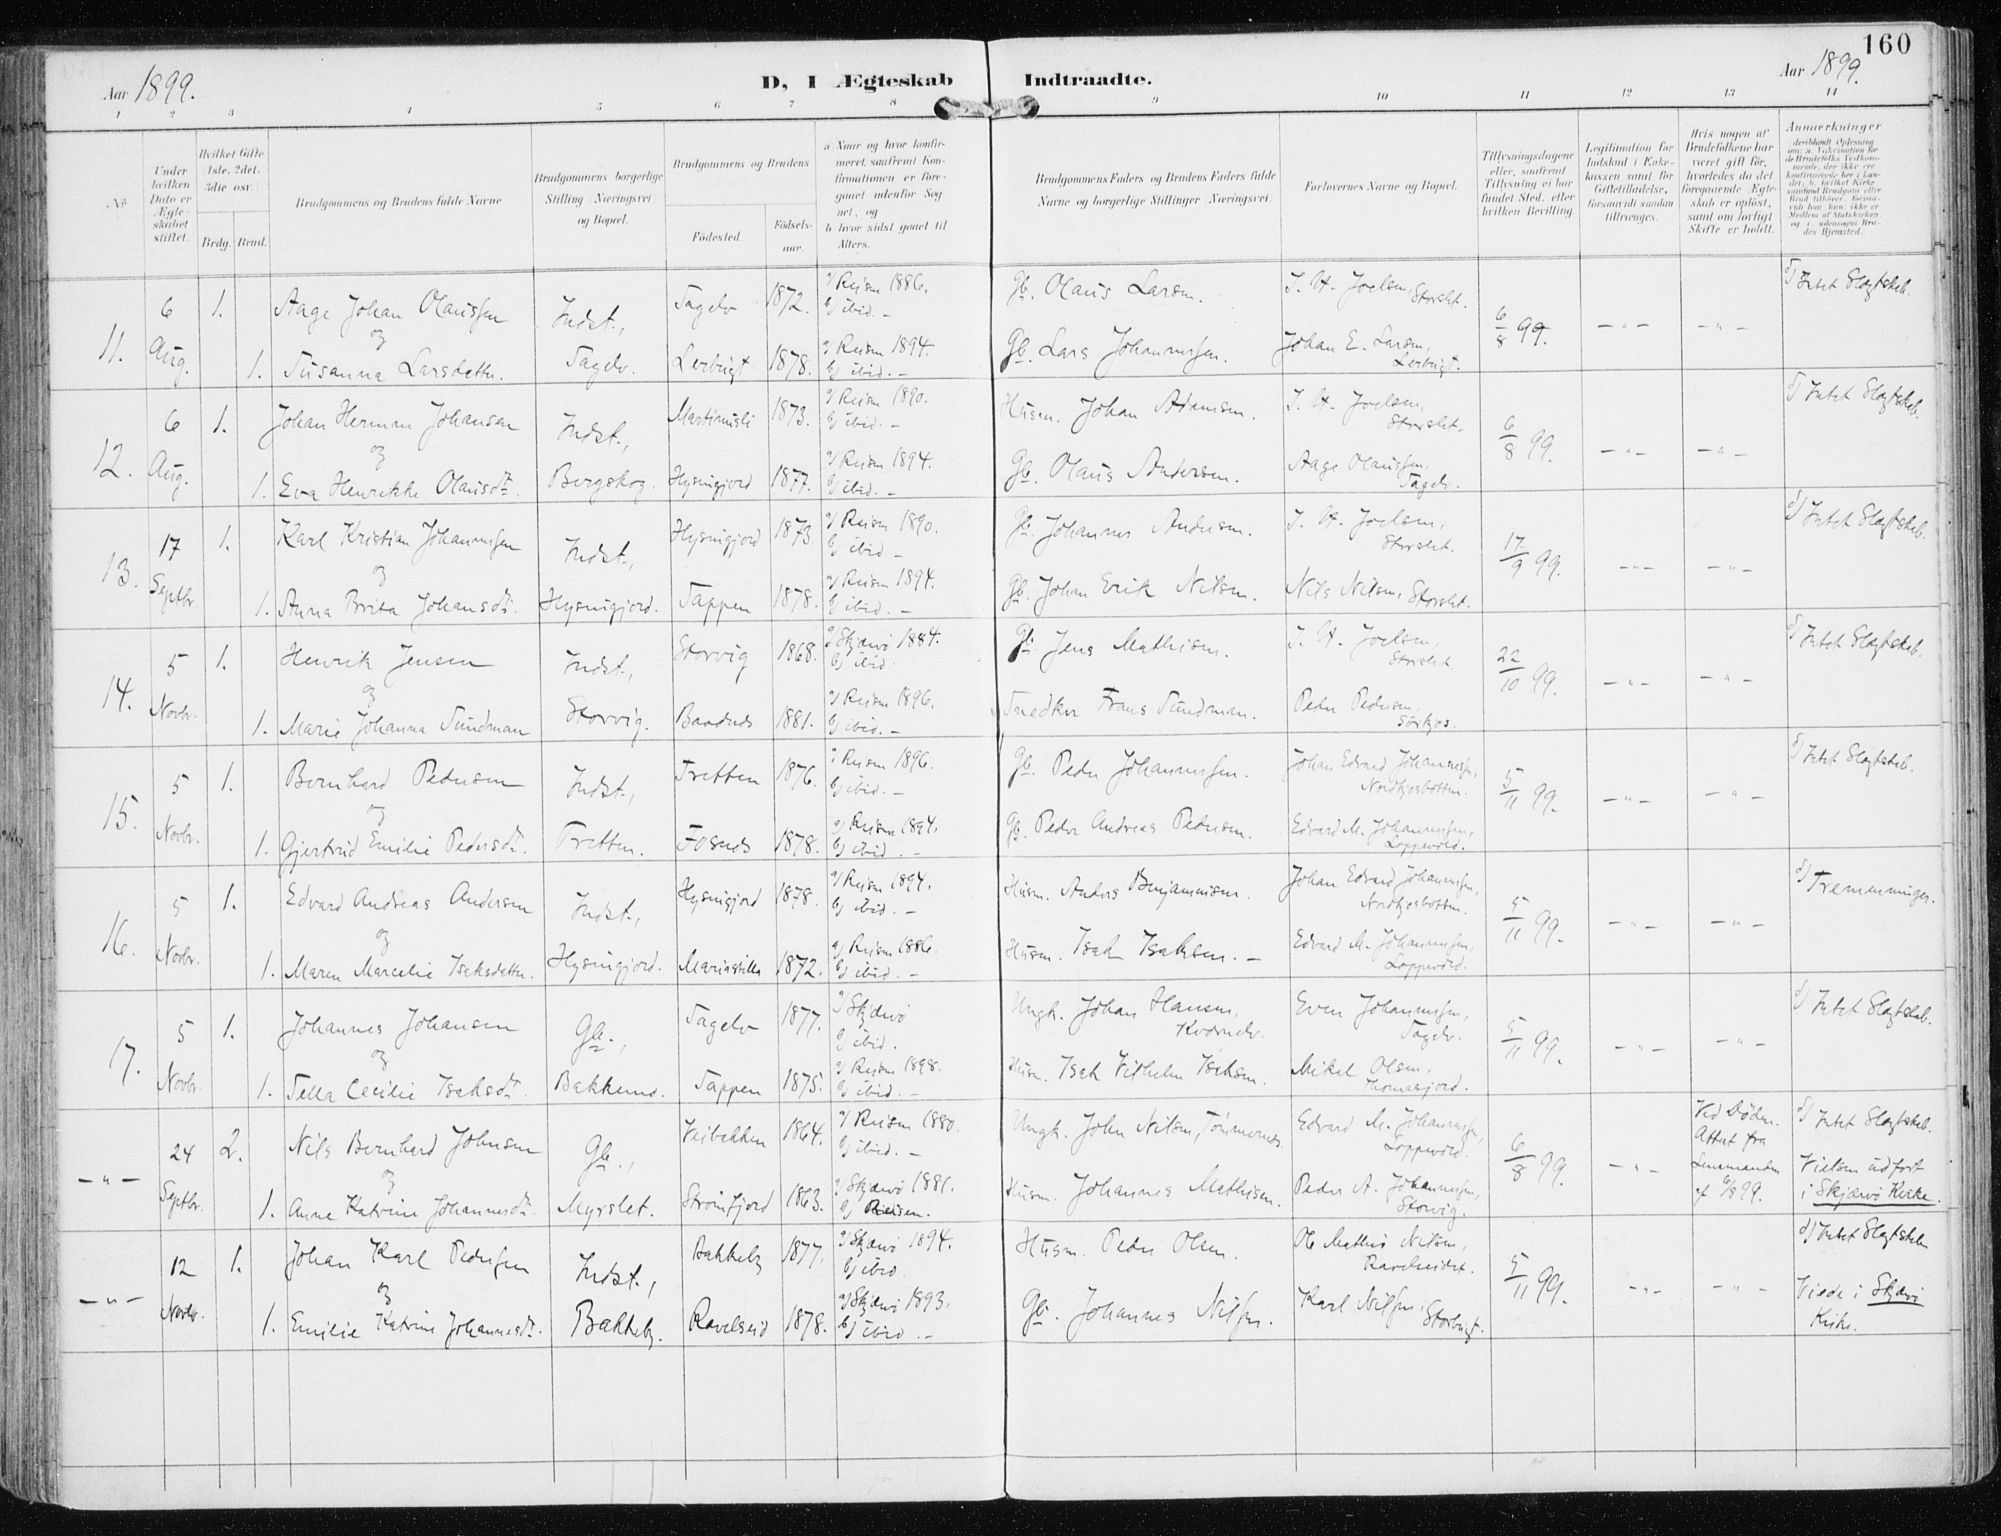 160
Aar 1899.
D, I Ægteskab Indtraadte.
Aar 1899.
1 2 3 4 5 6 7 8 9 10 11 12 13 14
No
Under hvilken Dato er Ægteskabet stiftet.
Hvilket Gifte (1ste, 2det, 3die osv.)
Brdg. Brud.
Brudgommens og Brudens fulde Navne
Brudgommens borgerlige Stilling (Næringsvei) og Bopæl.
Brudgommens og Brudens
Fødested.
Fødselsaar.
a. Naar og hvor konfirmeret, saafremt Konfirmationen er foregaaet udenfor Sognet, og
b. hvor sidst gaaet til Alters.
Brudgommens Faders og Brudens Faders fulde Navne og borgerlige Stilling (Næringsvei).
Forlovernes Navne og Bopæl.
Tillysningsdagene eller, saafremt Tillysning ei har fundet Sted, efter hvilken Bevilling.
Legitimation for Indskud i Enkekassen samt for Giftetilladelse, forsaavidt saadan tiltrænges.
Hvis nogen af Brudefolkene har været gift før, hvorledes da det foregaaende Ægteskab er opløst, samt om lovligt Skifte er holdt.
Anmærkninger
11. 6 Aug. 1. Aage Johan Olaussen Indst., Tagelv 1872. a) Reisen 1886. b) ibid. – Gb. Olaus Larsen. J. H. Joelsen, Storslet. 6/8 99. – " – – " – d) Intet Slægtskab.
og
1. Susanna Larsdatter. Tagelv. Lerbugt 1878. a) Reisen 1894. b) ibid. – Gb. Lars Johannessen. Johan E. Larsen, Lerbugt.
12. 6 Aug. 1. Johan Herman Johansen Indst., 1873. a) Reisen 1890. b) ibid. – Husm. Johan Adamsen. J. H. Joelsen, Storslet. 6/8 99. – " – – " – d) Intet Slægtskab.
og
1. Eva Henrikke Olausdtr. Bergskog. Hysingjord 1877. a) Reisen 1894. b) ibid. – Gb. Olaus Andersen. Aage Olaussen, Tagelv.
13. 17 Septbr. 1. Karl Kristian Johannessen Indst., Hysingjord 1873. a) Reisen 1890. b) ibid – Gb. Johannes Andersen. J. H. Joelsen, Storslet. 17/9 99. – " – – " – d) Intet Slægtskab.
og
1. Anna Brita Johansdtr. Hysingjord. Tappen 1878. a) Reisen 1894. b) ibid. – Gb. Johan Erik Nilsen. Nils Nilsen, Storslet.
14. 5 Novbr. 1. Henrik Jensen Indst., Storvig 1868. a) Skjærvø 1884. b) ibid. Gb. Jens Mathisen. J. H. Joelsen, Storslet 22/10 99. – " – – " – d) Intet Slægtskab.
og
1. Marie Johanna Sundman Storvig. 1881. a) Reisen 1896. b) ibid. – Snedker Frans Sundman. Peder Pedersen, Sørkjos.
15. 5 Novbr. 1. Bernhard Pedersen Indst., Tretten 1876. a) Reisen 1896. b) ibid. – Gb. Peder Johannessen. Johan Edvard Johannessen, Nordkjosbotten. 5/11 99. – " – – " – d) Intet Slægtskab.
og
1. Gjertrud Emilie Pedersdtr. Tretten. Fosnes 1878. a) Reisen 1894. b) ibid. – Gb. Peder Andreas Pedersen. Edvard M. Johannessen, Loppevold.
16. 5 Novbr. 1. Edvard Andreas Andersen Indst., Hysingjord 1878. a) Reisen 1894. b) ibid. – Husm. Anders Benjaminsen. Johan Edvard Johannessen, Nordkjosbotten. 5/11 99. – " – – " – d) Tremenninger.
og
1. Maren Marcelie Isaksdatter. Hysingjord. 1872. a) Reisen 1886. b) ibid. – Husm. Isak Isaksen. – Edvard M. Johannessen, Loppevold.
17. 5 Novbr. 1. Johannes Johansen Gb., Tagelv 1877. a) Skjærvø b) ibid. Ungk. Johan Hansen, Kvænelv. Even Johannessen, Tagelv. 5/11 99. – " – – " – d) Intet Slægtskab.
og
1. Tella Cecilie Isaksdtr. Bakkemo. Tappen 1875. a) Reisen 1898. b) ibid. – Husm. Isak Vilhelm Isaksen. Mikal Olsen, Thomasjord.
– " – 24 Septbr. 2. Nils Bernhard Johnsen Gb., Veibakken 1864. a) Reisen 1880. b) ibid. – Ungk. John Nilsen, Tømmernes. Edvard M. Johannessen, Loppevold. 6/8 99. – " – Ved Døden. Attest fra Lensmanden af 6/8 99. d) Intet Slægtskab. Vielsen udført i Skjærvø Kirke.
og
1. Anne Katrine Johannesdtr. Myrslet. Straumfjord 1863. a) Skjærvø 1881. b) Reisen. Husm. Johannes Mathisen. Peder A. Johannessen, Storvig.
– " – 12 Novbr. 1. Johan Karl Pedersen Indst., Bakkeby 1877. a) Skjærvø 1894. b) ibid. Husm. Peder Olsen. Ole Mathis Nilsen, Ravelseidet. 5/11 99. – " – – " – d) Intet Slægtskab Viede i Skjærvø Kirke.
og
1. Emilie Katrine Johannesdtr. Bakkeby. Ravelseid 1878. a) Skjærvø 1893. b) ibid. – Gb. Johannes Nilsen. Karl Nilsen, Storbugt.